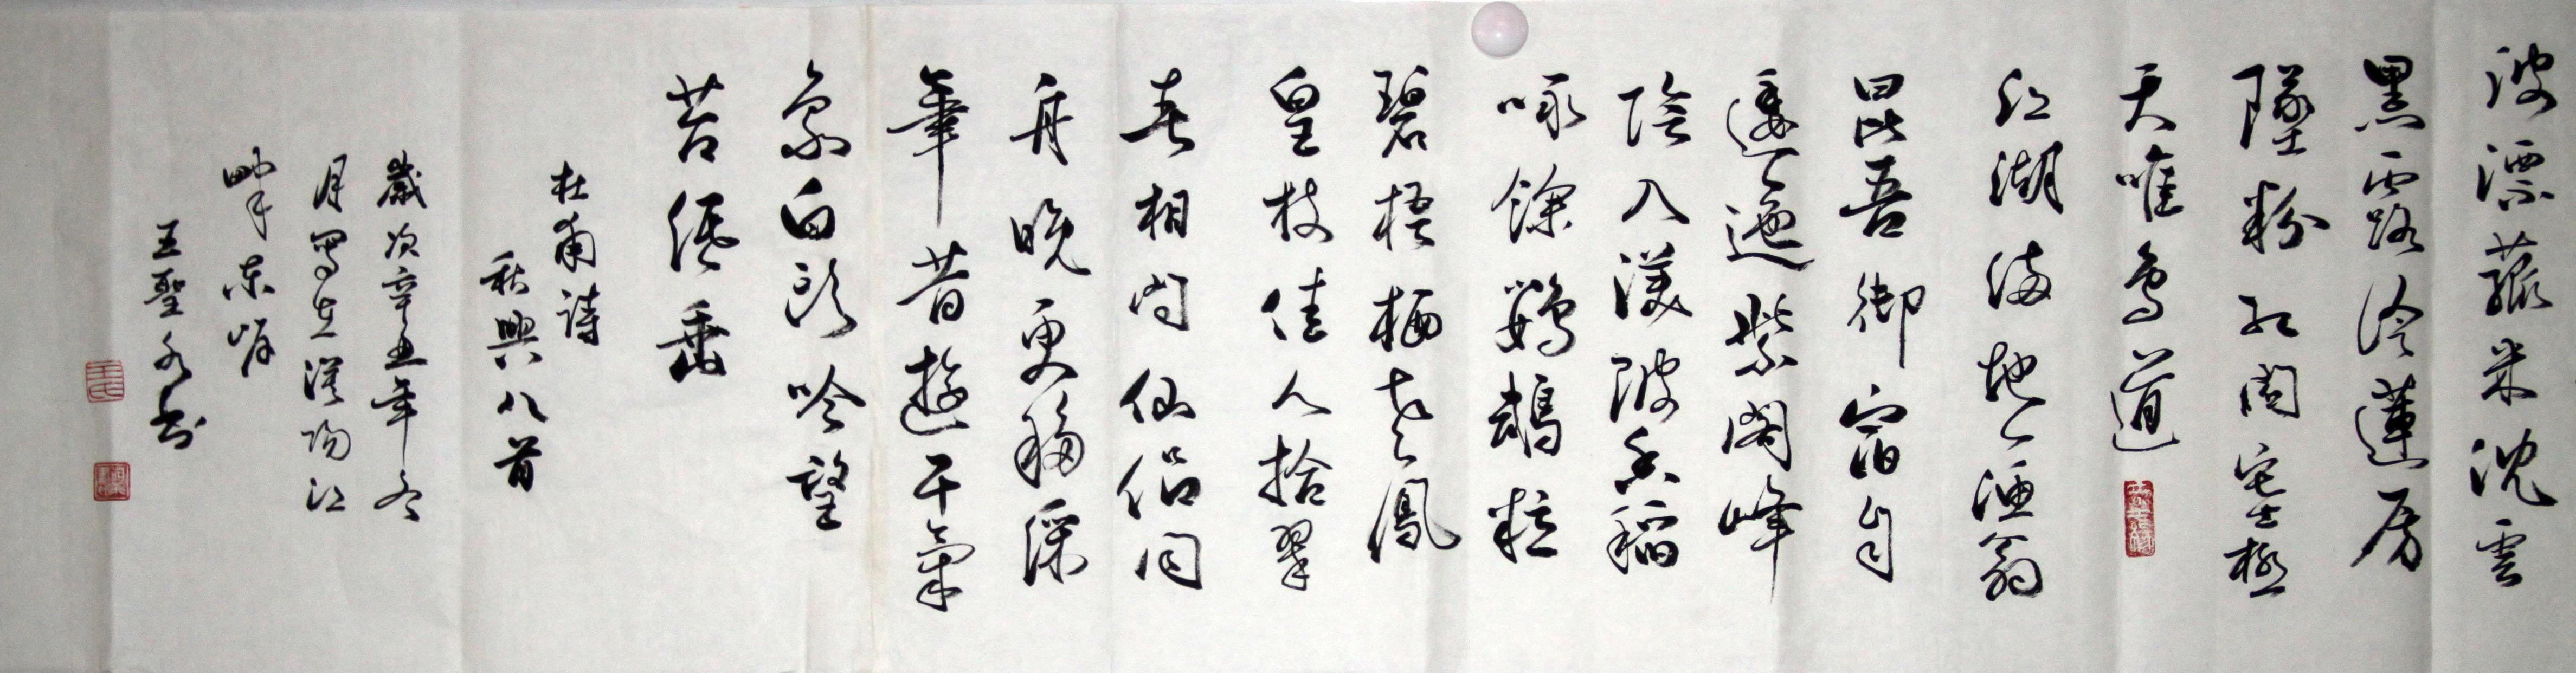 波漂菰米沈雲
黑露冷蓮房
墜粉紅関塞極
天唯鳥道
江湖滿地一漁翁
昆吾御宿自
逶迤紫閣峰
陰入渼陂香稻
啄餘鸚鵡粒
碧梧栖老鳳
皇枝佳人拾翠
春相问仙侣同
舟晚更移深
筆昔遊干氣
象白頭吟望
苦低垂
杜甫詩
秋興八首
歲次辛丑年冬
月寫在漢陽江
畔東岸
王聖永书
王氏